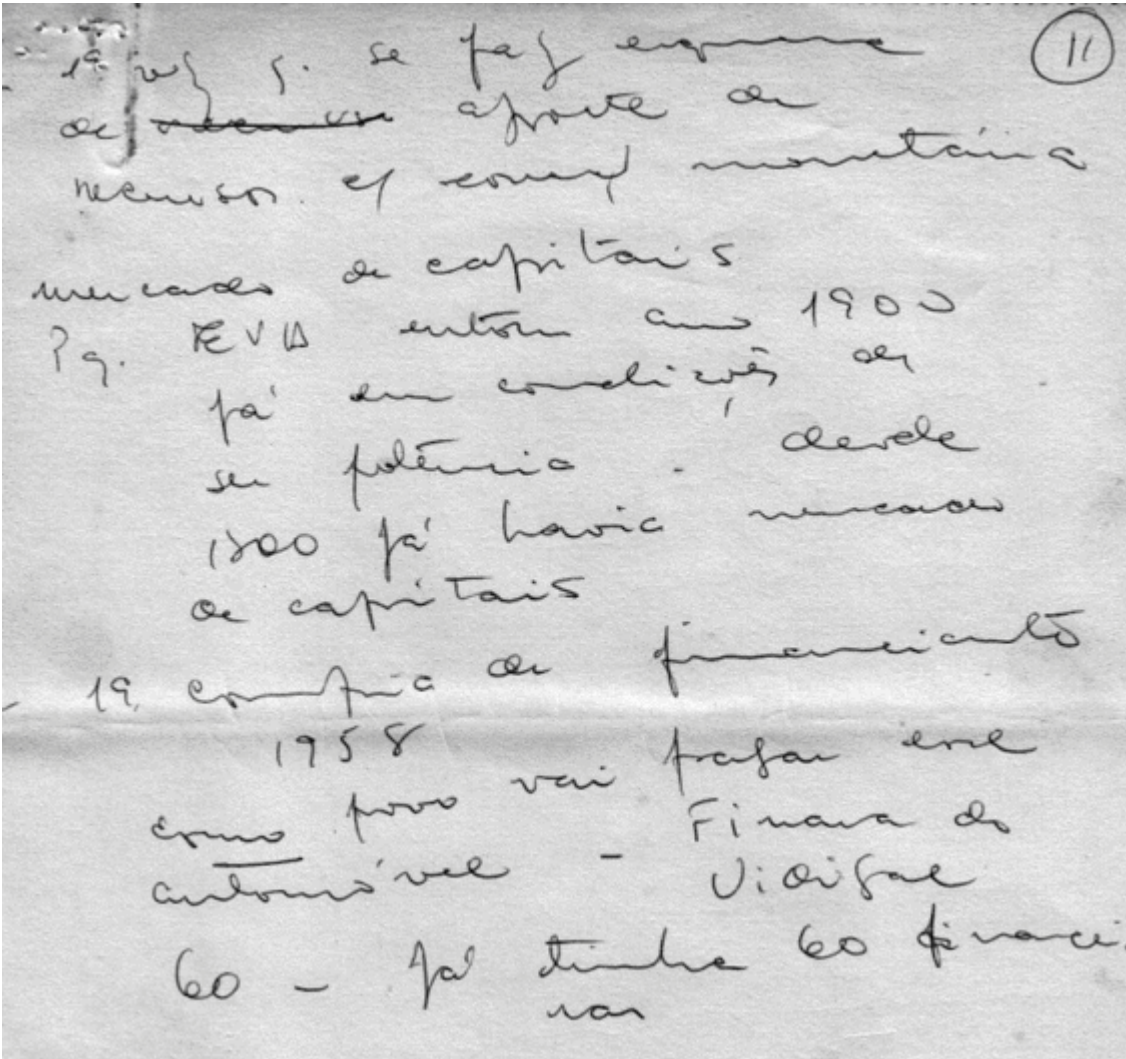 11
- 1ª vez q. se faz esquema
de aporte de
recursos c/ correç monetária
mercado de capitais
Pq. EVA entrou ano 1900
já em condições de
ser potência. desde
1800 já havia mercado
de capitais
- 1ª compria de financiamtº
1958
como povo vai pagar esse
automóvel - Finasa do
Vidigal
60 - já tinha 60 financei
ras